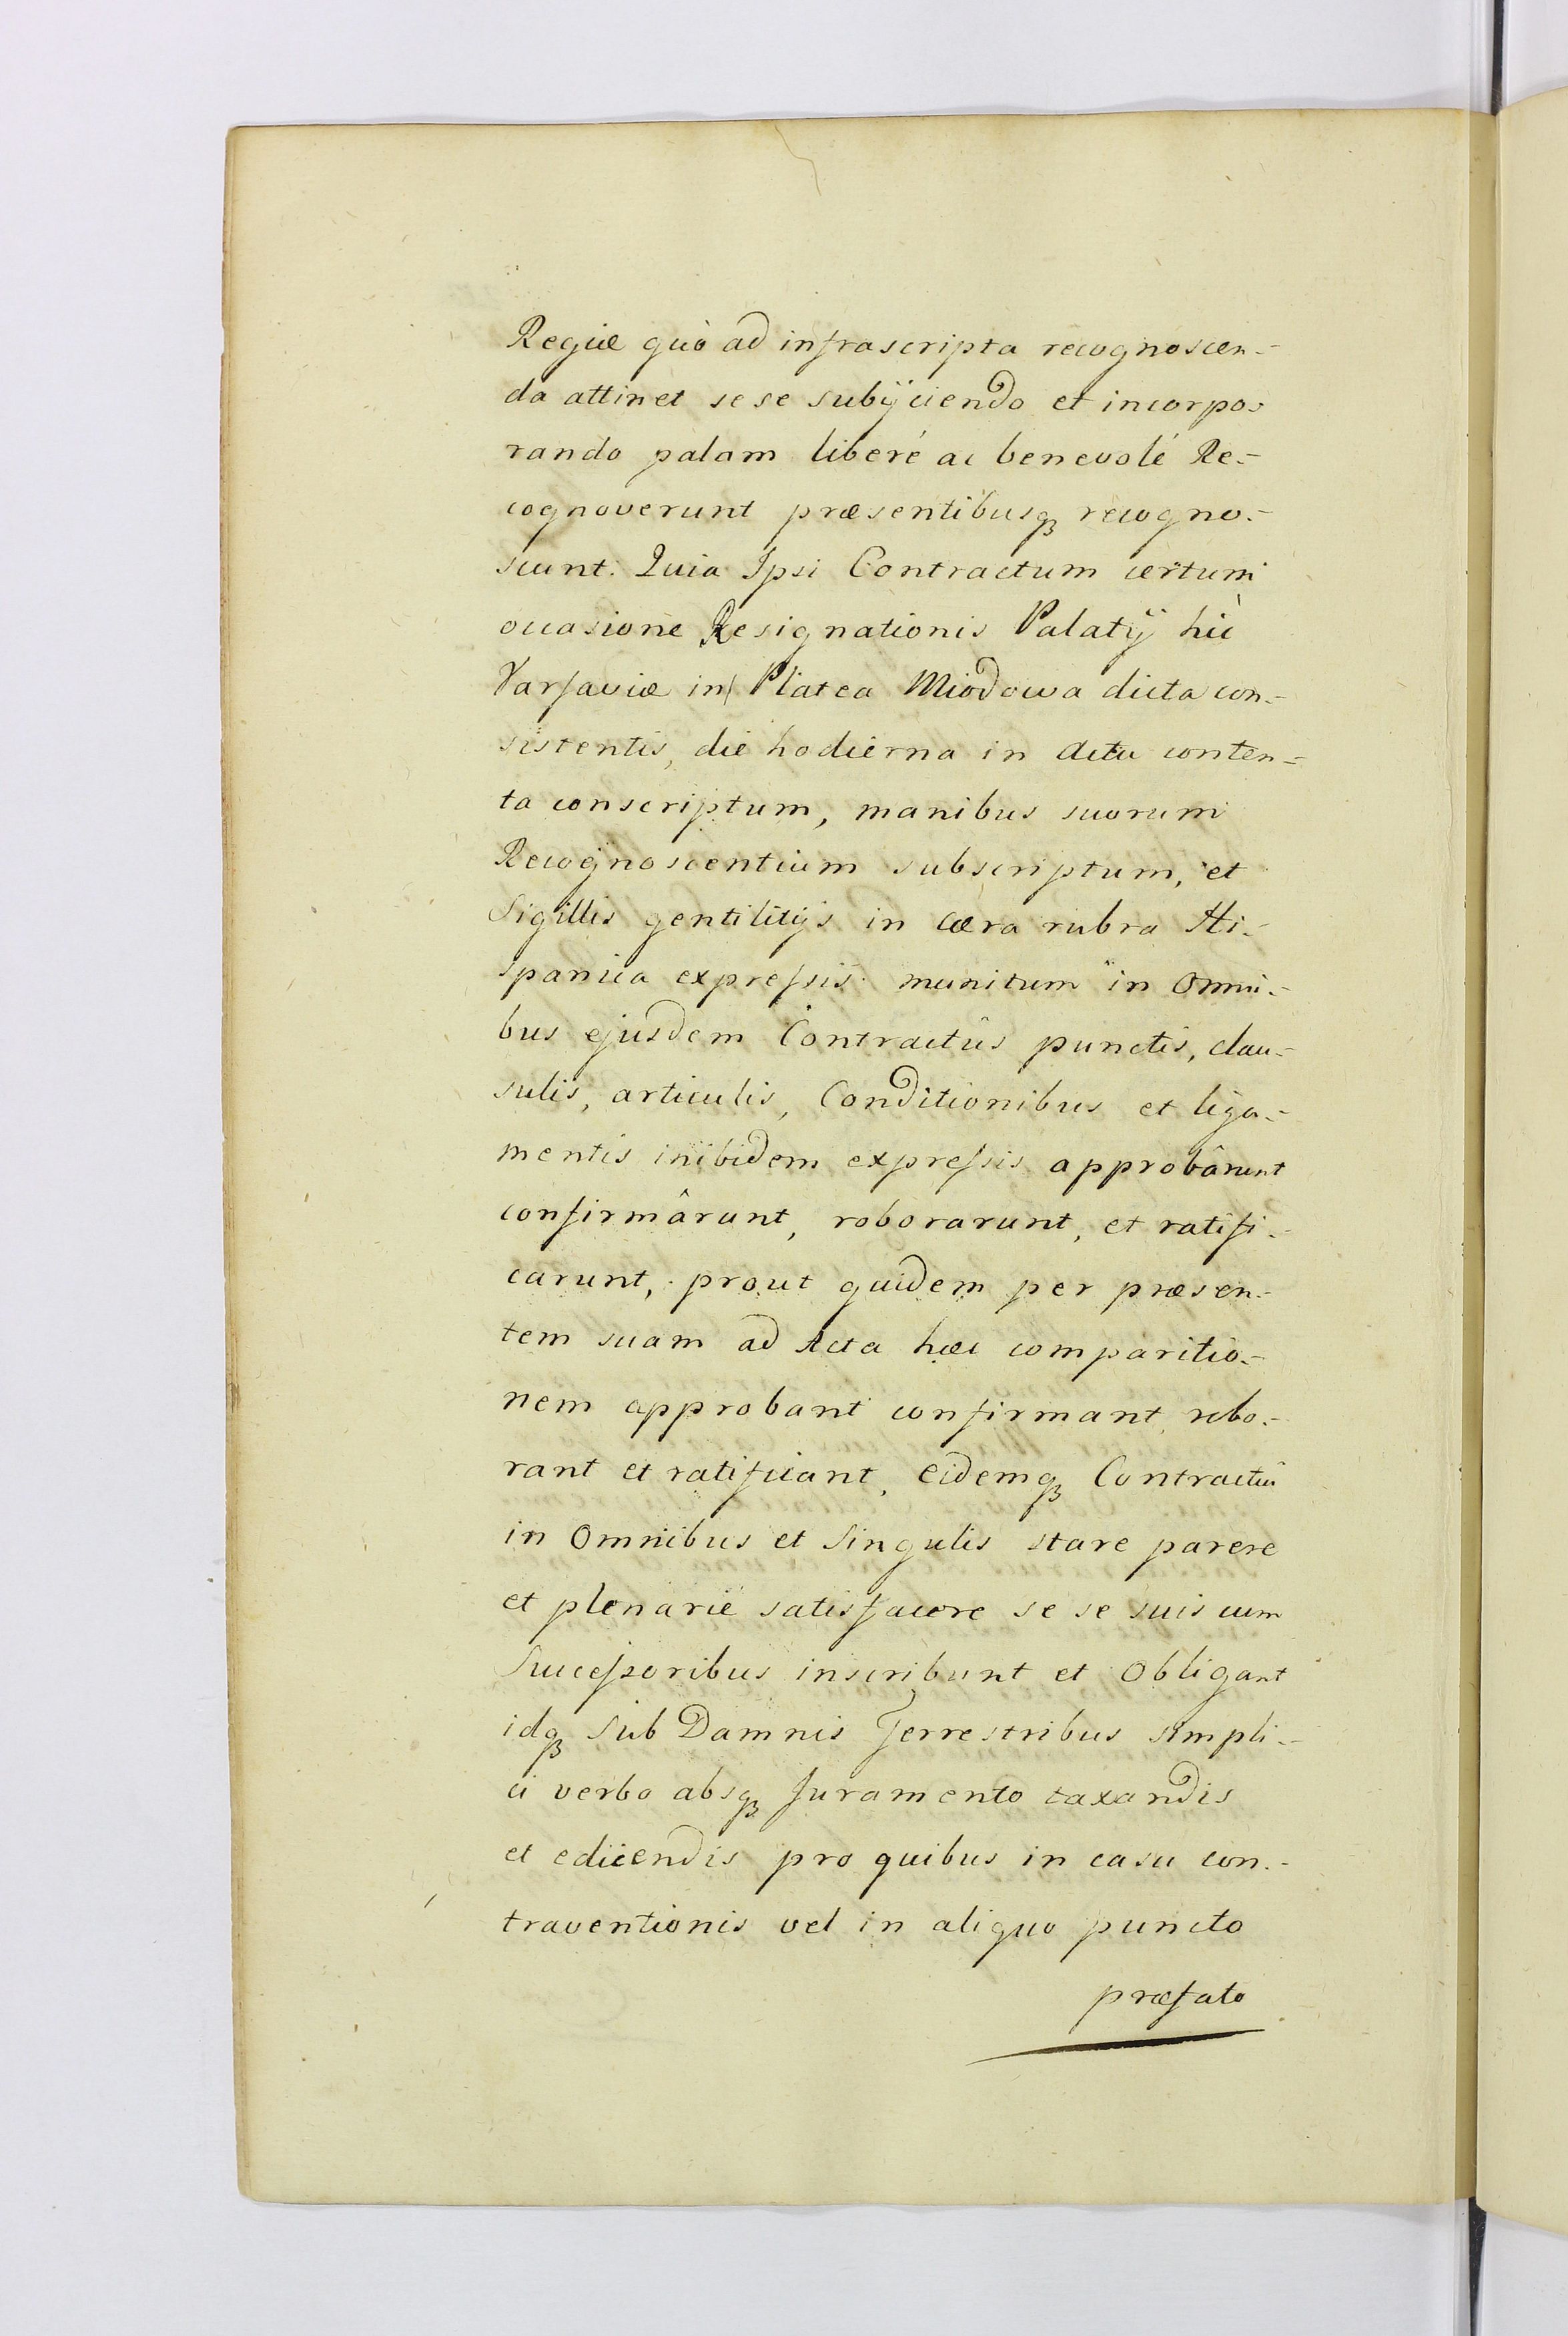 Regiæ quò ad infrascripta recognoscen⸗
da attinet sese subijciendo et incorpo⸗
rando palam liberé ac benevolé Re⸗
cognoverunt præsentibusqꝫ recogno⸗
scunt. Quia Ipsi Contractum certum
occasione Resignationis Palatij hìc
Varsaviæ in Platea Miodowa dicta con⸗
sistentis, die hodierna in actu conten⸗
ta conscriptum, manibus suorum
Recognoscentium subscriptum, et
Sigillis gentilitijs in cæra rubra Hi⸗
spanica expressis munitum in Omni⸗
bus ejusdem Contractûs punctis, clau⸗
sulis, articulis, Conditionibus et liga⸗
mentis inibidem expressis approbârunt
confirmârunt, roborarunt, et ratifi⸗
carunt, prout quidem per præsen⸗
tem suam ad Acta hæc comparitio⸗
nem approbant confirmant, robo⸗
rant et ratificant, eidemqꝫ Contractui
in Omnibus et Singulis stare parere
et plenarié satisfacere se se suis cum
Successoribus inscribunt et Obligant
idqꝫ Sub Damnis Terrestribus simpli⸗
ci verbo absqꝫ Juramento taxandis
et edicendis pro quibus in casu con⸗
traventionis vel in aliquo puncto
præfato